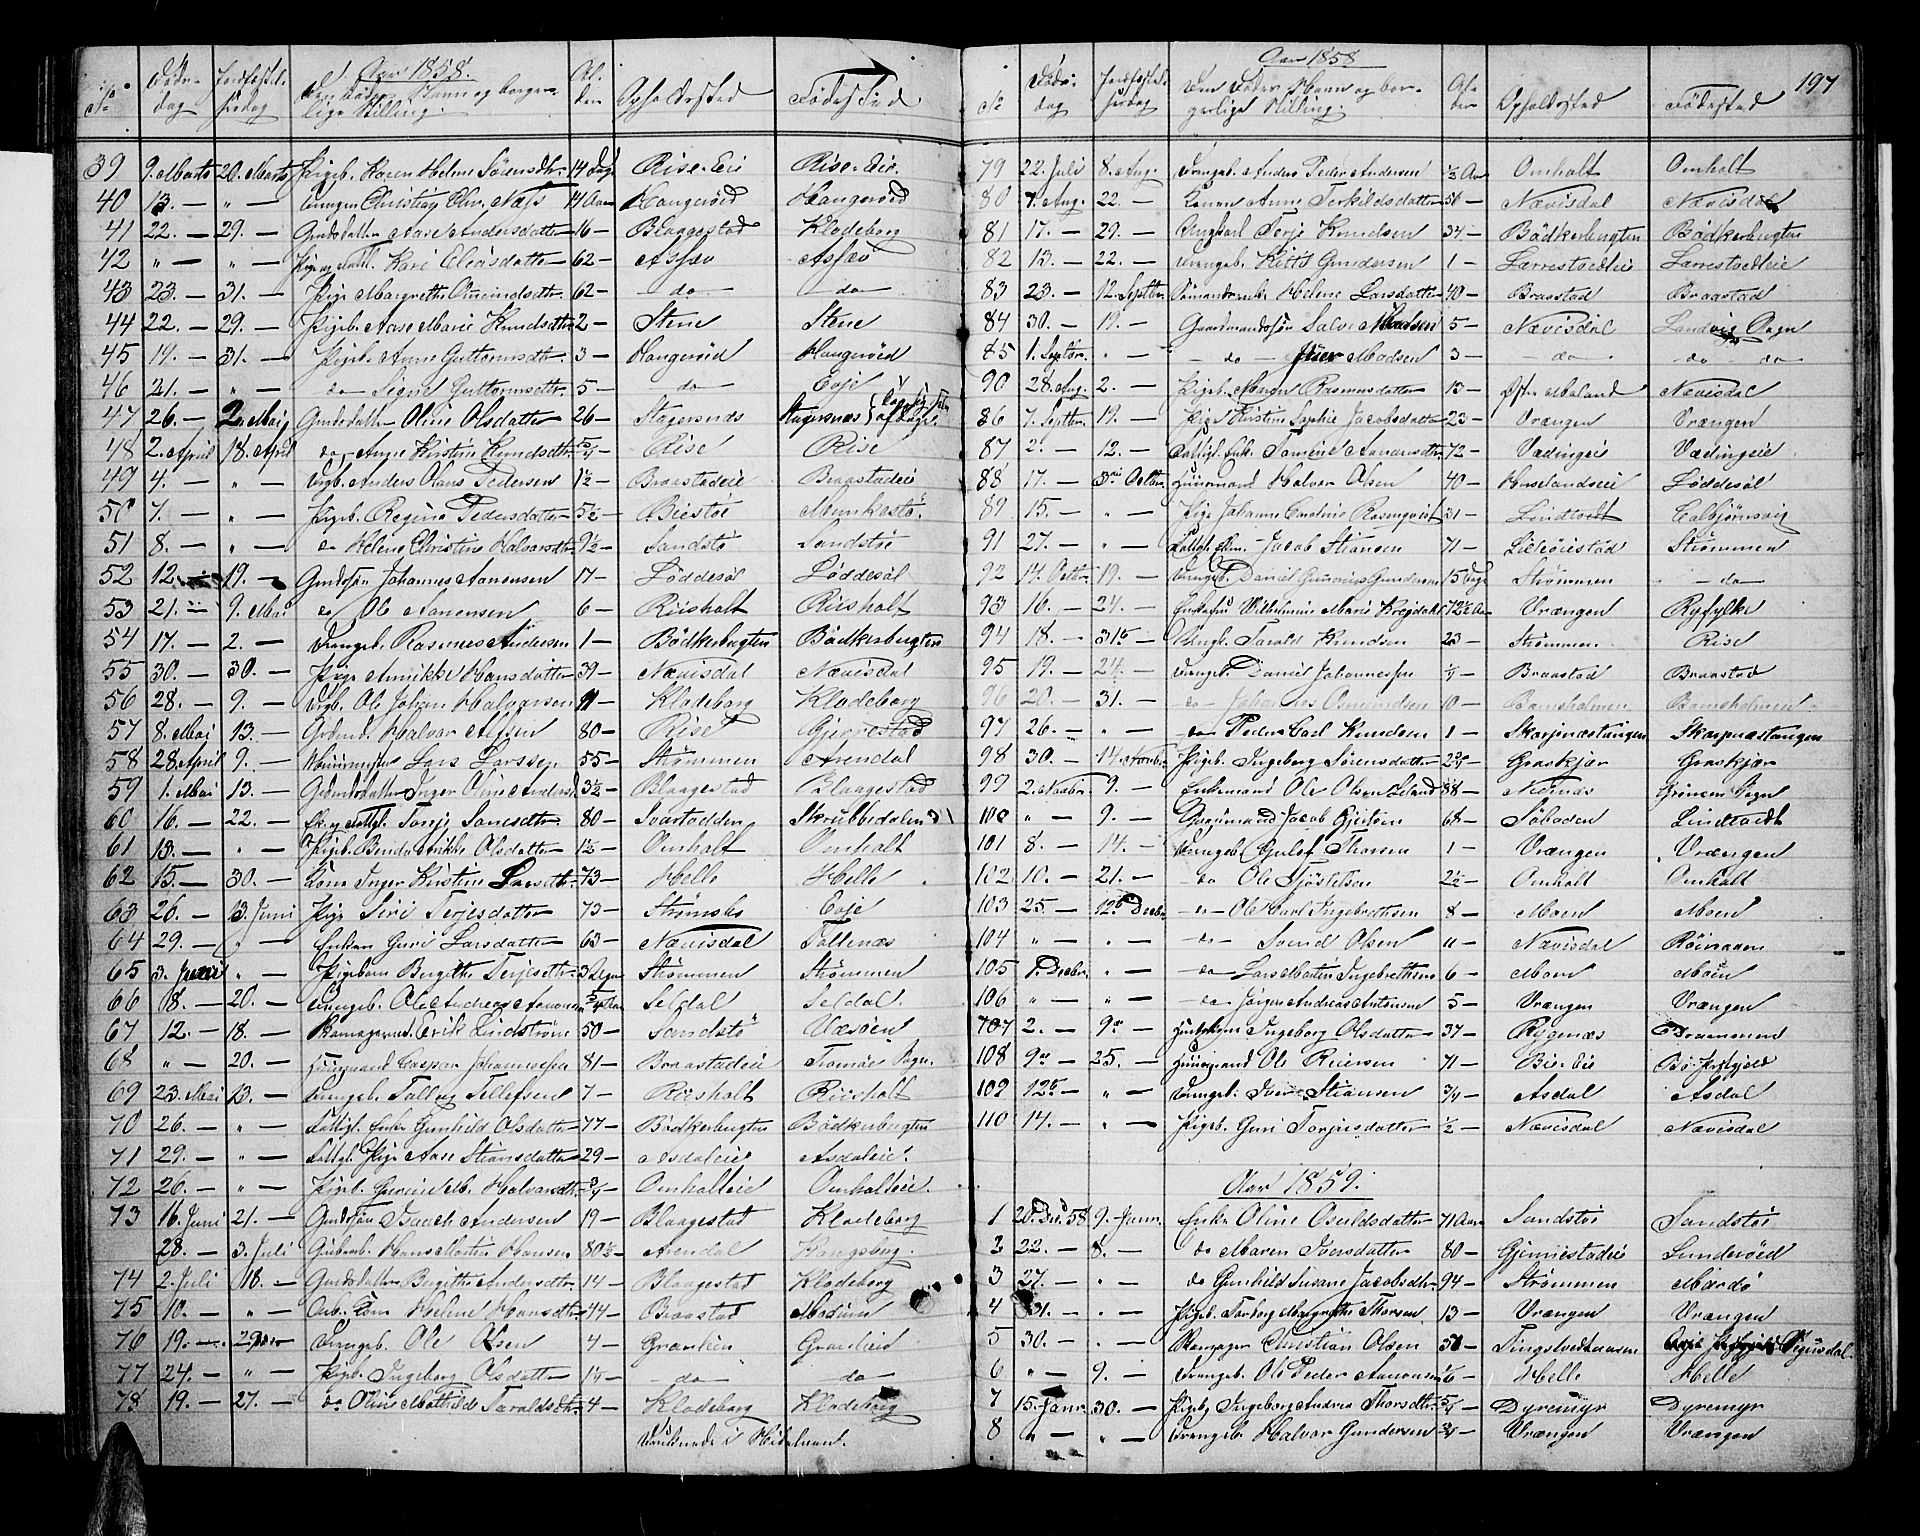 Aar 1858.
No
Døds-dag
Jordfæstelsesdag
Den Dødes Navn og borgerlige Stilling.
Alder
Opholdssted
Fødested
39 9. Marts 20. Marts Pigeb. Karen Helene Sørensdtr. 14 Dage Rise-Eie Rise-Eie.
40 13. — " — Ungen Christian Chr. Næss 14 Aar Haugerøed Haugerøed
41 22. — 29. — Grdsdatter Aase Andersdatter 16 — Blaagestad Klodeborg
42 " — " — Kari Olausdatter 62 — Asfæv Asfæv
43 23. — 31. — Pige Margrethe Omundsdtr 62 — do — — do —
44 22. — 29. — Pigeb. Aase Marie Knudsdtr 2 — Stene Stene
45 19. — 31. — Pigeb. Anne Guttormsdtr. 3 — Haugerøed Haugerøed
46 21. — " — do Signe Guttormsdtr. 5 — do — Evje
47 26. — 2. Maj Grdsdatter Oline Olsdatter 26 — Stagersnæs Stagersnæs
48 2. April 18. April do Anne Kirstine Knudsdtr. Rise Rise
49 4. — " — Drgb. Anders Olaus Pedersen 1½ — Braastadeie Braastadeie
50 7. — " — Pigeb. Regine Pedersdatter 5½ — Biestøe Munkestø.
51 8. — " — do Helene Christine Halvorsdtr 9½ — Sandstø Sandstøe
52 12. — 19. — Grdssøn Johannes Aanonsen 17 — Løddesøl Løddesøl
53 21. — 9. Mai do Ole Aanonsen 6 — Riisholt Riisholt
54 17. — 2. — Drengeb. Rasmus Andersen 1 — Bødkerbugten Bødkerbugten
55 30. — 30. — Pige Annikke Hansdatter 39 — Nævisdal Nævisdal
56 28. — 9. — Drgb. Ole Johan Halvorsen Klodeborg Klodeborg
57 8. Mai 13. — Grdmd. Halvor Alfsen 80 — Rise Gjerrestad
58 28. April 9. — Lars Larssen 55 — Strømmen Arendal
59 1. Mai 13. — Grdmdsdatter Inger Oline Andersd. 3½ — Blaagestad Blaagestad
60 16. — 22. — 80 — Svartodden Skrubbedalen
61 13. — " — Pigeb. Olsdatter 1½ — Omholt Omholt
62 15. — 30. — Kone Inger Kirstine Larsdtr. 73 — Helle Helle.
63 26. — 13. Juni Pige Siri Terjesdatter 73 — Strømsbo Evje
64 29. — " — Enken Guri Larsdatter 63 — Nævisdal Tollenæs
65 3. Juni " — Pigebarn Birgithe Terjesdtr. 3 Dage Strømmen Strømmen
66 8. — 20. — Drengeb. Ole Andreas Aanonsen Seldal Seldal.
67 12. — 18. — Erik Lindstrøm 50 — Sandstø
68 " — 20. — Huusmand Caspar Johannessen 81 — Braastadeie Tromøe Sogn.
69 23. Mai 13. — Drengeb. Tallag Tellefsen 7 — Riisholt Riisholt
70 26. — " — Fattigl. Enke Gunhild Olsdatter 77 — Bødkerbugten Bødkerbugten
71 29. — " — Fattgl. Pige Aase Stiansdatter 29 — Asdaleie Asdaleie.
72 26. — " — Pigeb. Gurine M. Halvorsdtr. ¾ — Omholteie Omholteie.
73 16. Juni 21. — Grdssøn Isaach Andersen 19 — Blaagestad Klodeborg
28. — 3. Juli Hans Martin Hansen 80½ — Arendal Kongsberg.
74 2. Juli 18. — Grdsdatter Birgithe Andersdtr. 14 — Blaagestad Klodeborg
75 10. — " — Kone Helene Hansdtr. 44 — Braastad Modum
76 19. — 29. — Drengeb. Ole Olsen 4 — Graaleie Graaleie
77 24. — " — Pigeb. Ingeborg Olsdatter — do — — do —
78 19. — 27. — do Oline Mathilde Taraldsdtr. 4 — Klodeborg Klodeborg
Druknede i Hølen
197
Aar 1858
No
Døds-dag
Jordfæstelsesdag
Den Dødes Navn og borgerlige Stilling.
Alder
Opholdssted
Fødested
79 22. Juli 8. Aug. Drengeb. Anders Peder Andersen ½ Aar Omholt Omholt
80 7. Aug. 22. — Konen Anne Terkildsdatter 50 — Nævisdal Nævisdal
81 17. — 29. — Ungkarl Terje Knudsen 34 — Bødkerbugten Bødkerbugten
82 13. — 22. — Drengeb. Gundersen 1 — Larrestvedteie Larrestvedteie
83 23. — 12. Septbr. Sømandsenke Helene Larsdatter 40 — Braastad Braastad
84 30. — 19. — Gaardmandssøn Salve Madsen 5 — Nævisdal Landvig Sogn
85 1. Septbr. " — do — Iver Madsen 3 — do — do do
90 28. Aug. 2. — Pigeb. Maren Rasmusdatter 13 — Østre Maland Nævisdal
86 7. Septbr. 19. — Pige Kirstine Sophie Jacobsdatter 23 — Vrængen Vrængen
87 2. — 12. — Fattigl. Enke Tomine Aanonsdtr. 72 — Vædingeie Vædingeie
88 17. — 3die Octbr. Huusmand Halvor Olsen 40 — Huselandseie Løddesøl
89 15. — " — Pige Johanne Caroline Rosenqvist 31 — Lindtvedt Colbjørnsvig
91 27. — " — Fattigl. Jacob Stiansen 71 — Lilleøiestad Strømmen
92 14. Octbr. 19. — Drengeb. Daniel Gundersen 15 Dage Strømmen — do —
93 16. — 24. — Enkefru Wilhelmine Marie 72½ Aar Vrængen Ryfylke
94 18. — 31te — Ungk. Tarald Knudsen 23 — Strømmen Rise
95 19. — 24. — Drengeb. Daniel Johannessen Braastad Braastad
96 20. — 31. — do — Johannes Osmundsen 10 — Bamsholmen Bamsholmen.
97 26. — " — do Peder Carl Knudsen 1 — Skarpnæstangen Skarpnæstangen
98 30. — 14. Novbr. Pigeb. Ingeborg Sørensdatter Graskjær Graskjær
99 2. Novbr. 9. — Enkemand Ole Olsen 88 — Nærnæs Sogn
100 " — 9. — Jacob Gjertsen 68 — Søboden Lindtvedt
101 8. — 14. — Drengeb. Gulof Thorsen 1 — Vrængen Vrængen
102 10. — 21. — do Ole Tjøstelsen 2½ — Omholt Omholt
103 25. — 12te Decbr. do — Ole Carl Ingebrethsen 8 — Moen Moen
104 " — " — — do — Svend Olsen 11 — Nævisdal
105 1. Decbr. " — — do Lars Martin Ingebrethsen 6 — Moen Moen
106 " — " — — do Jørgen Andreas Antonsen 5 — Vrængen Vrængen
107 2. — 9de — Ingeborg Olsdatter 37 — Rygenæs Drammen
108 9de — 25. — Huusmand Ole Reiersen 71 — Bie-Eie Bø
109 12te — " — Drengeb. Iver Stiansen ¾ — Asdal Asdal
110 14. — " — Pigeb. Guri Terjesdatter ½ — Nævisdal Nævisdal
Aar 1859.
1 20. Dec. 58 9. Janr. Enke Oline Osuldsdatter 71 Aar Sandstøe Sandstøe
2 22. — 8. — do Maren Iversdatter 80 — Gjennestadeie Lunderøed
3 27. — " — do Gunhild Susanne Jacobsdtr. 94 — Strømmen Mærdø
4 31. — " — Pigeb. Torborg Margrethe Thorsen 13 — Vrængen Vrængen
5 30. — " — Christian Olsen 50 — Tingstvedthausen
6 " — 9. — Drengeb. Ole Peder Aanonsen Helle Helle
7 15. Janr. 30. — Pigeb. Ingeborg Andrea Thorsdtr. Dyremyr Dyremyr
8 " — " — Drengeb. Halvor Gundersen ¾ — Vrængen Vrængen